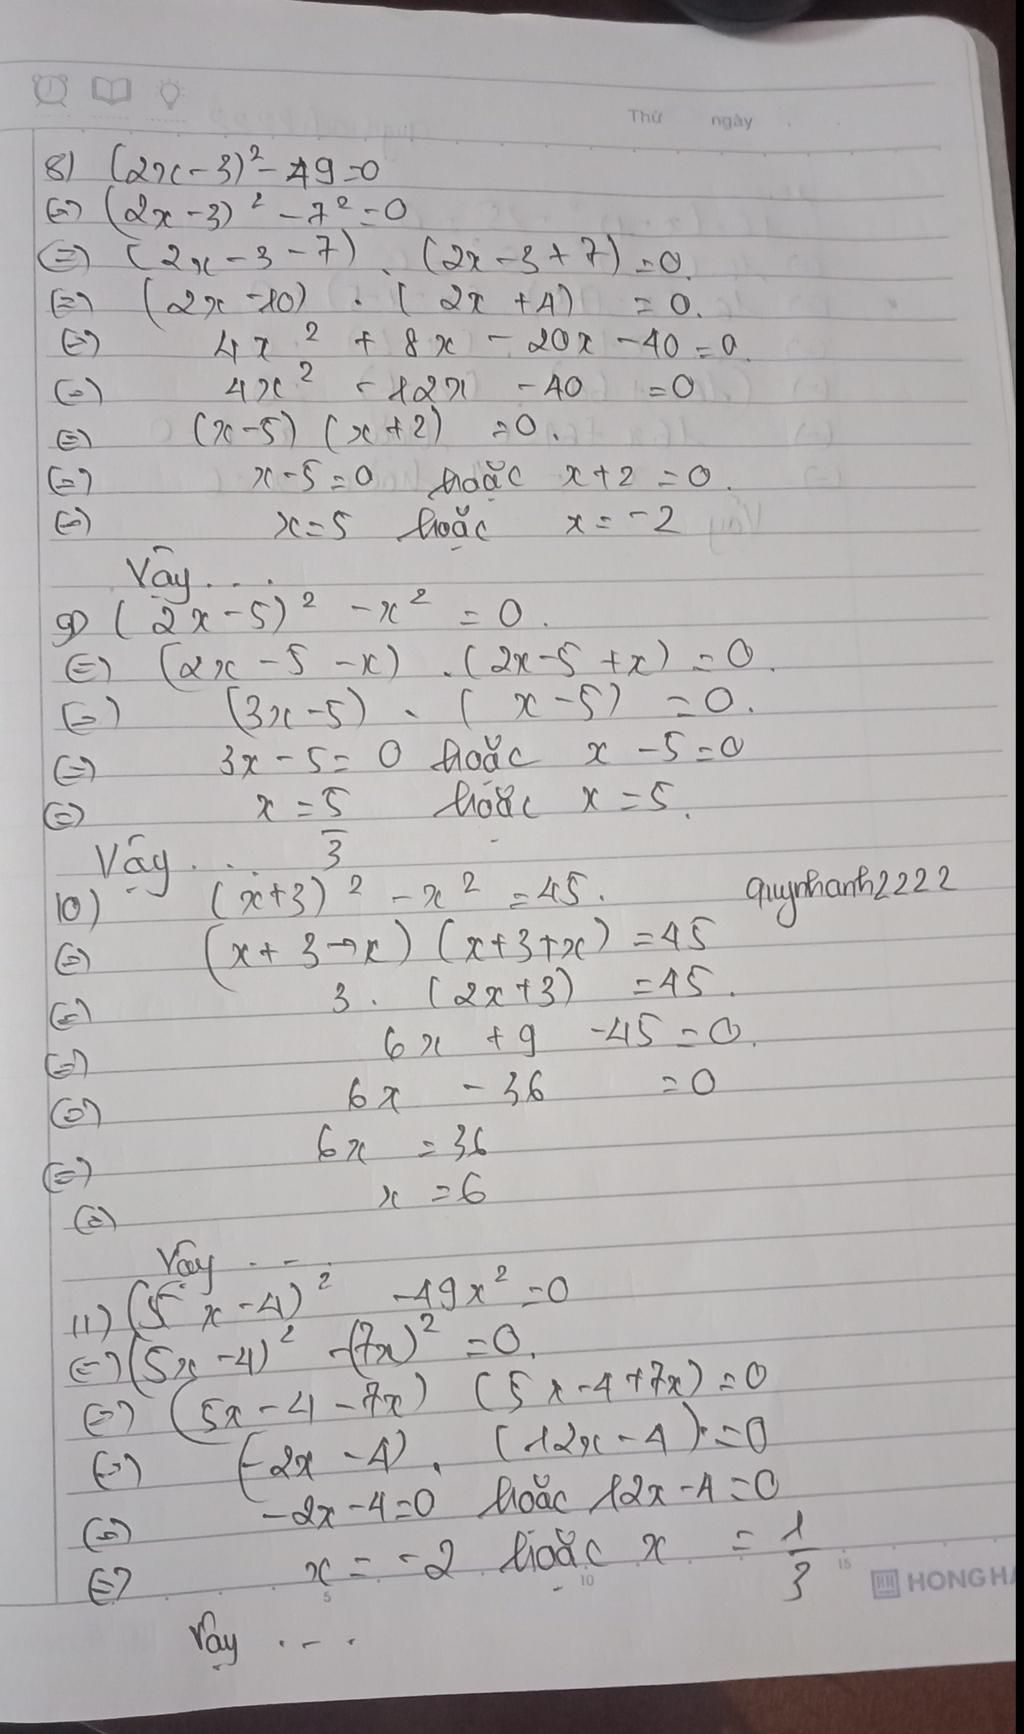 Thứ ngày
8) (2x-3)² - 49=0
(=) (2x-3)² - 7² =0
(=) (2x-3-7) . (2x-3+7) =0.
(=) (2x-10) . (2x+4) = 0.
(=) 4x² + 8x - 20x - 40 = 0.
(=) 4x² - 12x - 40 = 0
(=) (x-5) (x+2) =0.
(=) x-5=0 hoặc x+2 =0.
(=) x=5 hoặc x = -2
Vậy...
9) (2x-5)² - x² = 0.
(=) (2x-5-x) . (2x-5+x) = 0.
(=) (3x-5) . (x-5) = 0.
(=) 3x-5= 0 hoặc x-5=0
(=) x = 5/3 hoặc x = 5.
Vậy...
10) (x+3)² - x² =45. quynhanh2222
(=) (x+3-x) (x+3+x) =45
(=) 3. (2x+3) =45.
(=) 6x +9 -45=0.
(=) 6x - 36 =0
(=) 6x = 36
(=) x = 6
Vậy ...
11) (5x-4)² -49x² =0
(=) (5x-4)² -(7x)² =0.
(=) (5x-4-7x) (5x-4+7x) =0
(=) (-2x-4) . (12x-4) =0
(=) -2x-4=0 hoặc 12x-4=0
(=) x = -2 hoặc x = 1/3
5 10 15 HONG HA
Vậy ...